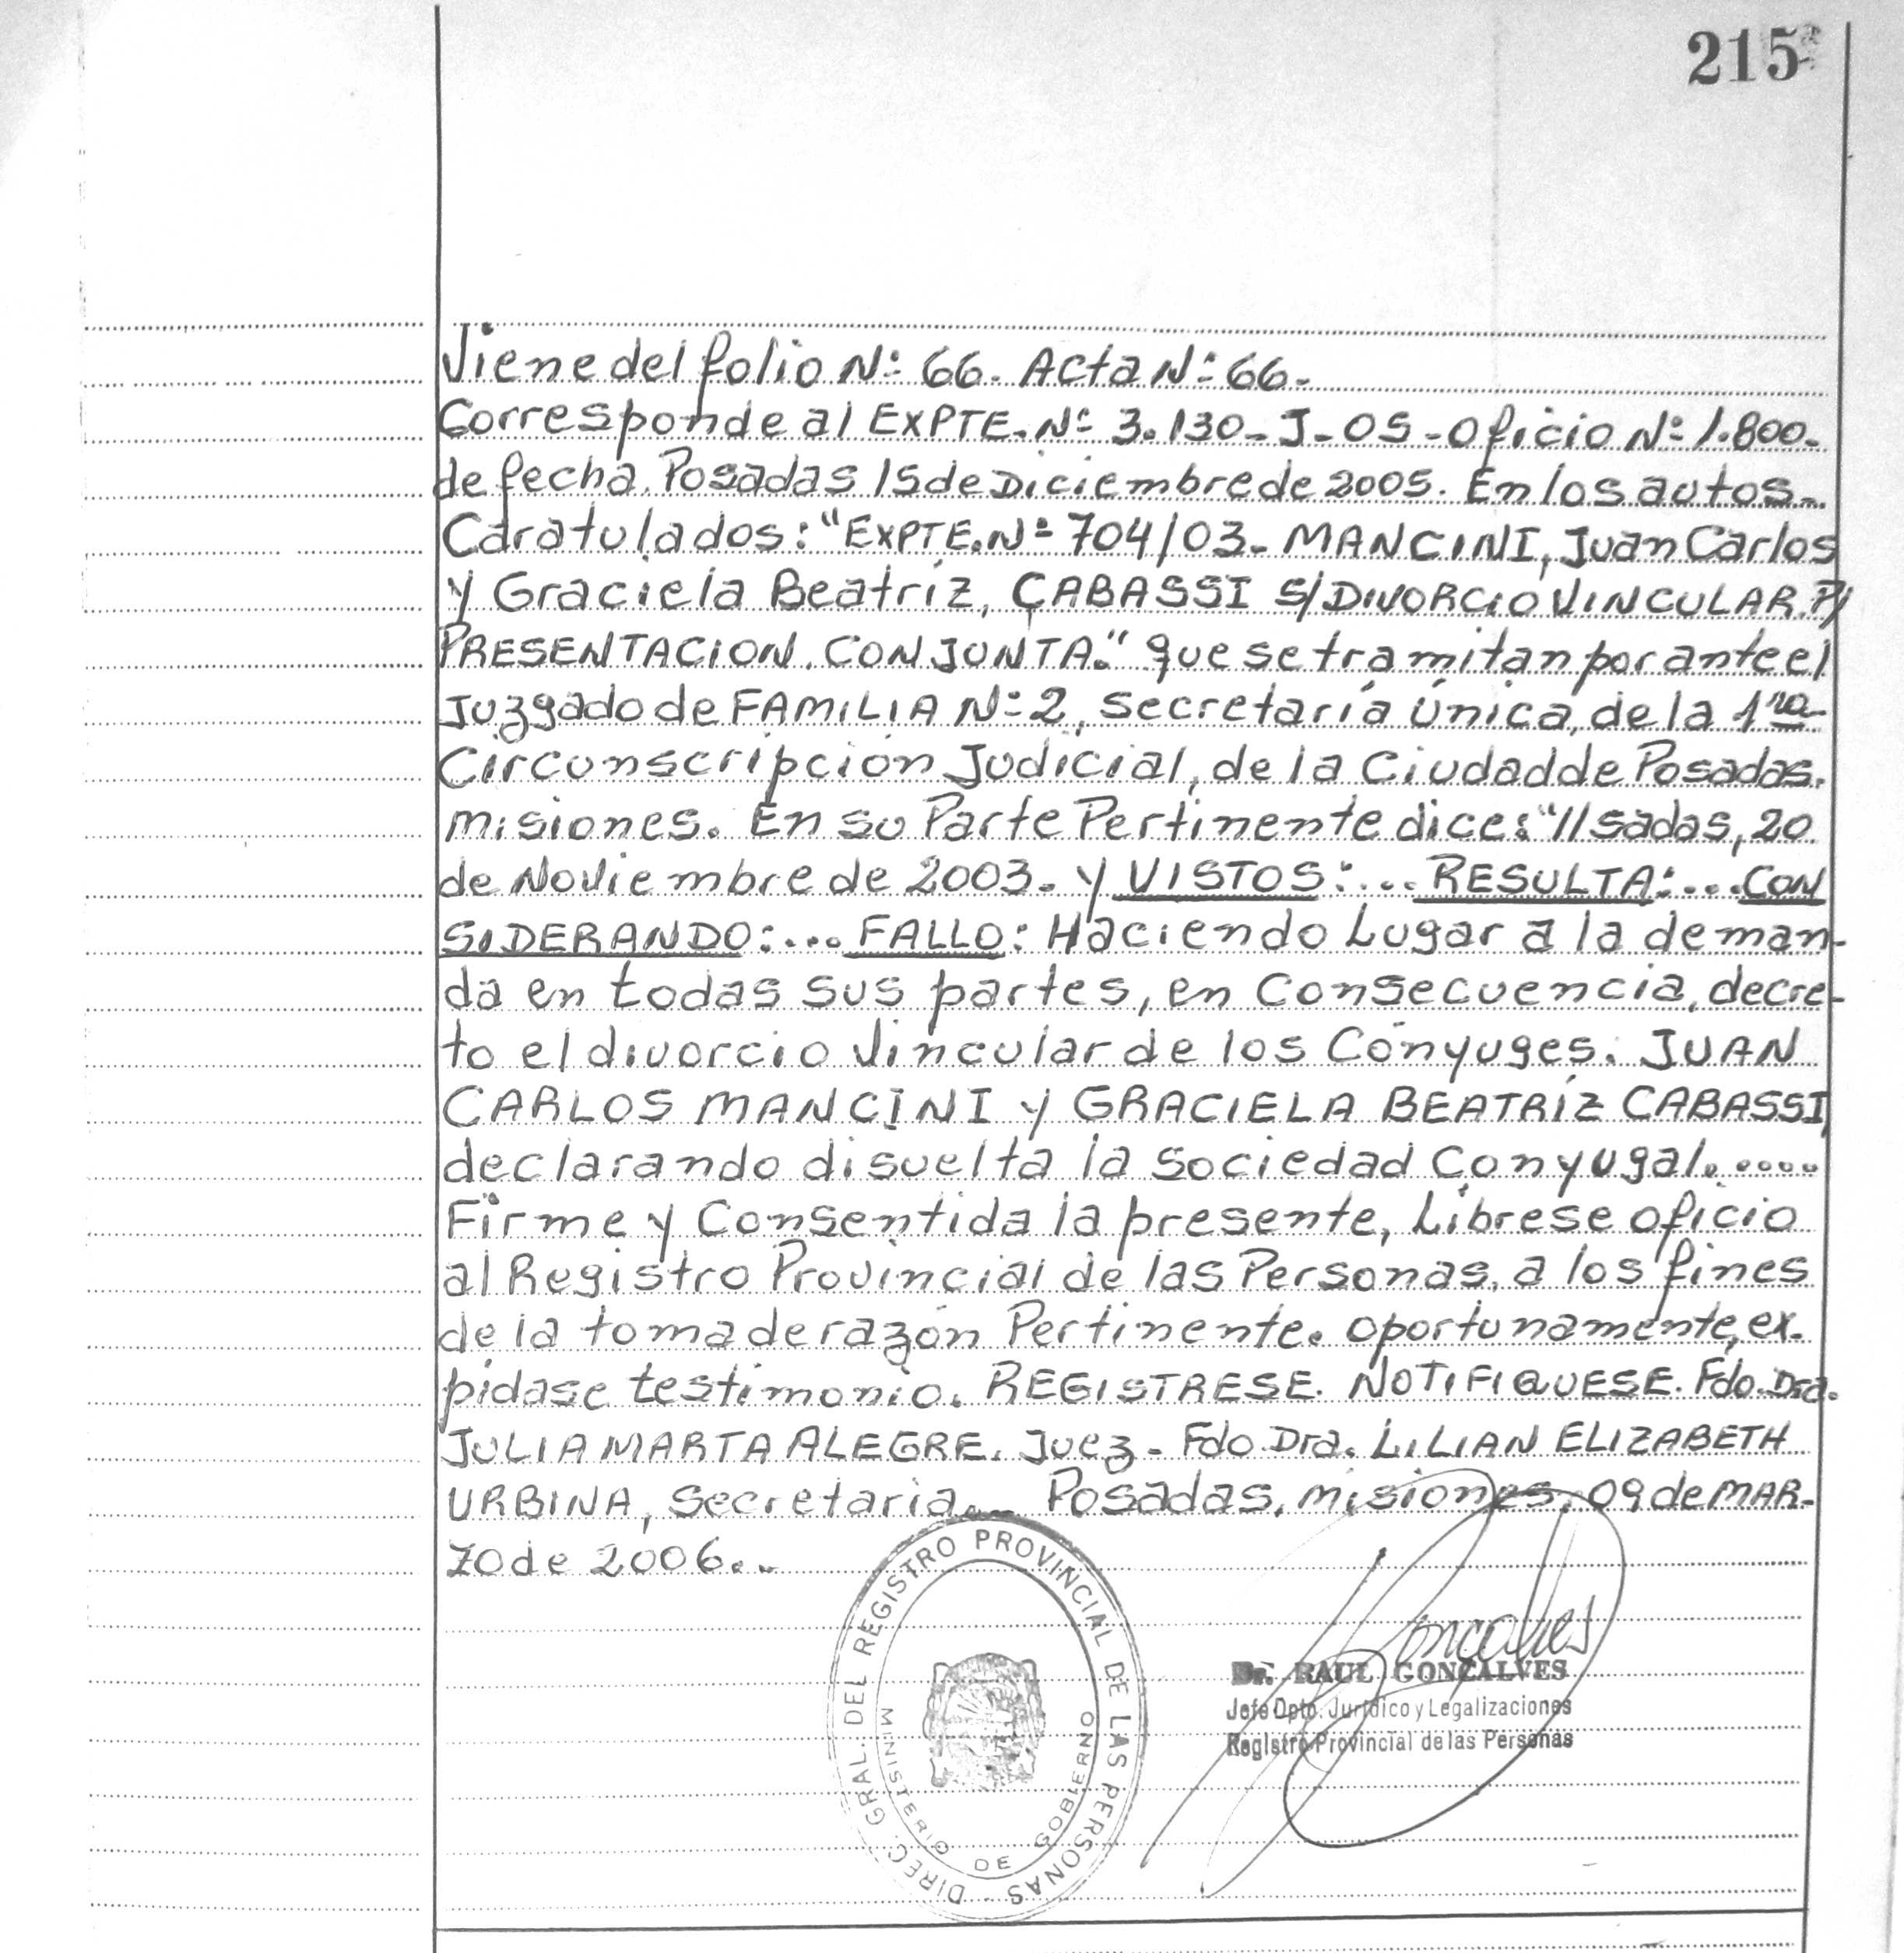 215
Viene del folio Nº 66. Acta Nº 66.
Corresponde al EXPTE. Nº 3.130-J-05-Oficio Nº 1.800-
de fecha. Posadas 15 de Diciembre de 2005. En los autos-
Caratulados: "EXPTE. Nº 704/03- MANCINI, Juan Carlos
y Graciela Beatriz, CABASSI S/DIVORCIO VINCULAR. P/
PRESENTACION. CONJUNTA." que se tramitan por ante el
Juzgado de FAMILIA Nº 2, secretaría única, de la 1ra
Circunscripción Judicial, de la Ciudad de Posadas.
misiones. En su Parte Pertinente dice: "//sadas, 20
de Noviembre de 2003. y VISTOS:... RESULTA:... CON
SIDERANDO:... FALLO: Haciendo Lugar a la deman-
da en todas sus partes, en Consecuencia, decre-
to el divorcio vincular de los Cónyuges. JUAN
CARLOS MANCINI y GRACIELA BEATRIZ CABASSI,
declarando disuelta la sociedad Conyugal.....
Firme y Consentida la presente, Líbrese oficio
al Registro Provincial de las Personas, a los fines
de la toma de razón Pertinente. oportunamente, ex-
pidase testimonio. REGISTRESE. NOTIFIQUESE. Fdo. Dra.
JULIA MARTA ALEGRE. Juez- Fdo. Dra. LILIAN ELIZABETH
URBINA, Secretaria.- Posadas, misiones, 09 de MAR-
ZO de 2006.-
DIREC. GRAL. DEL REGISTRO PROVINCIAL DE LAS PERSONAS
MINISTERIO DE GOBIERNO
Goncalves
Dr. RAUL GONCALVES
Jefe Dpto. Jurídico y Legalizaciones
Registro Provincial de las Personas